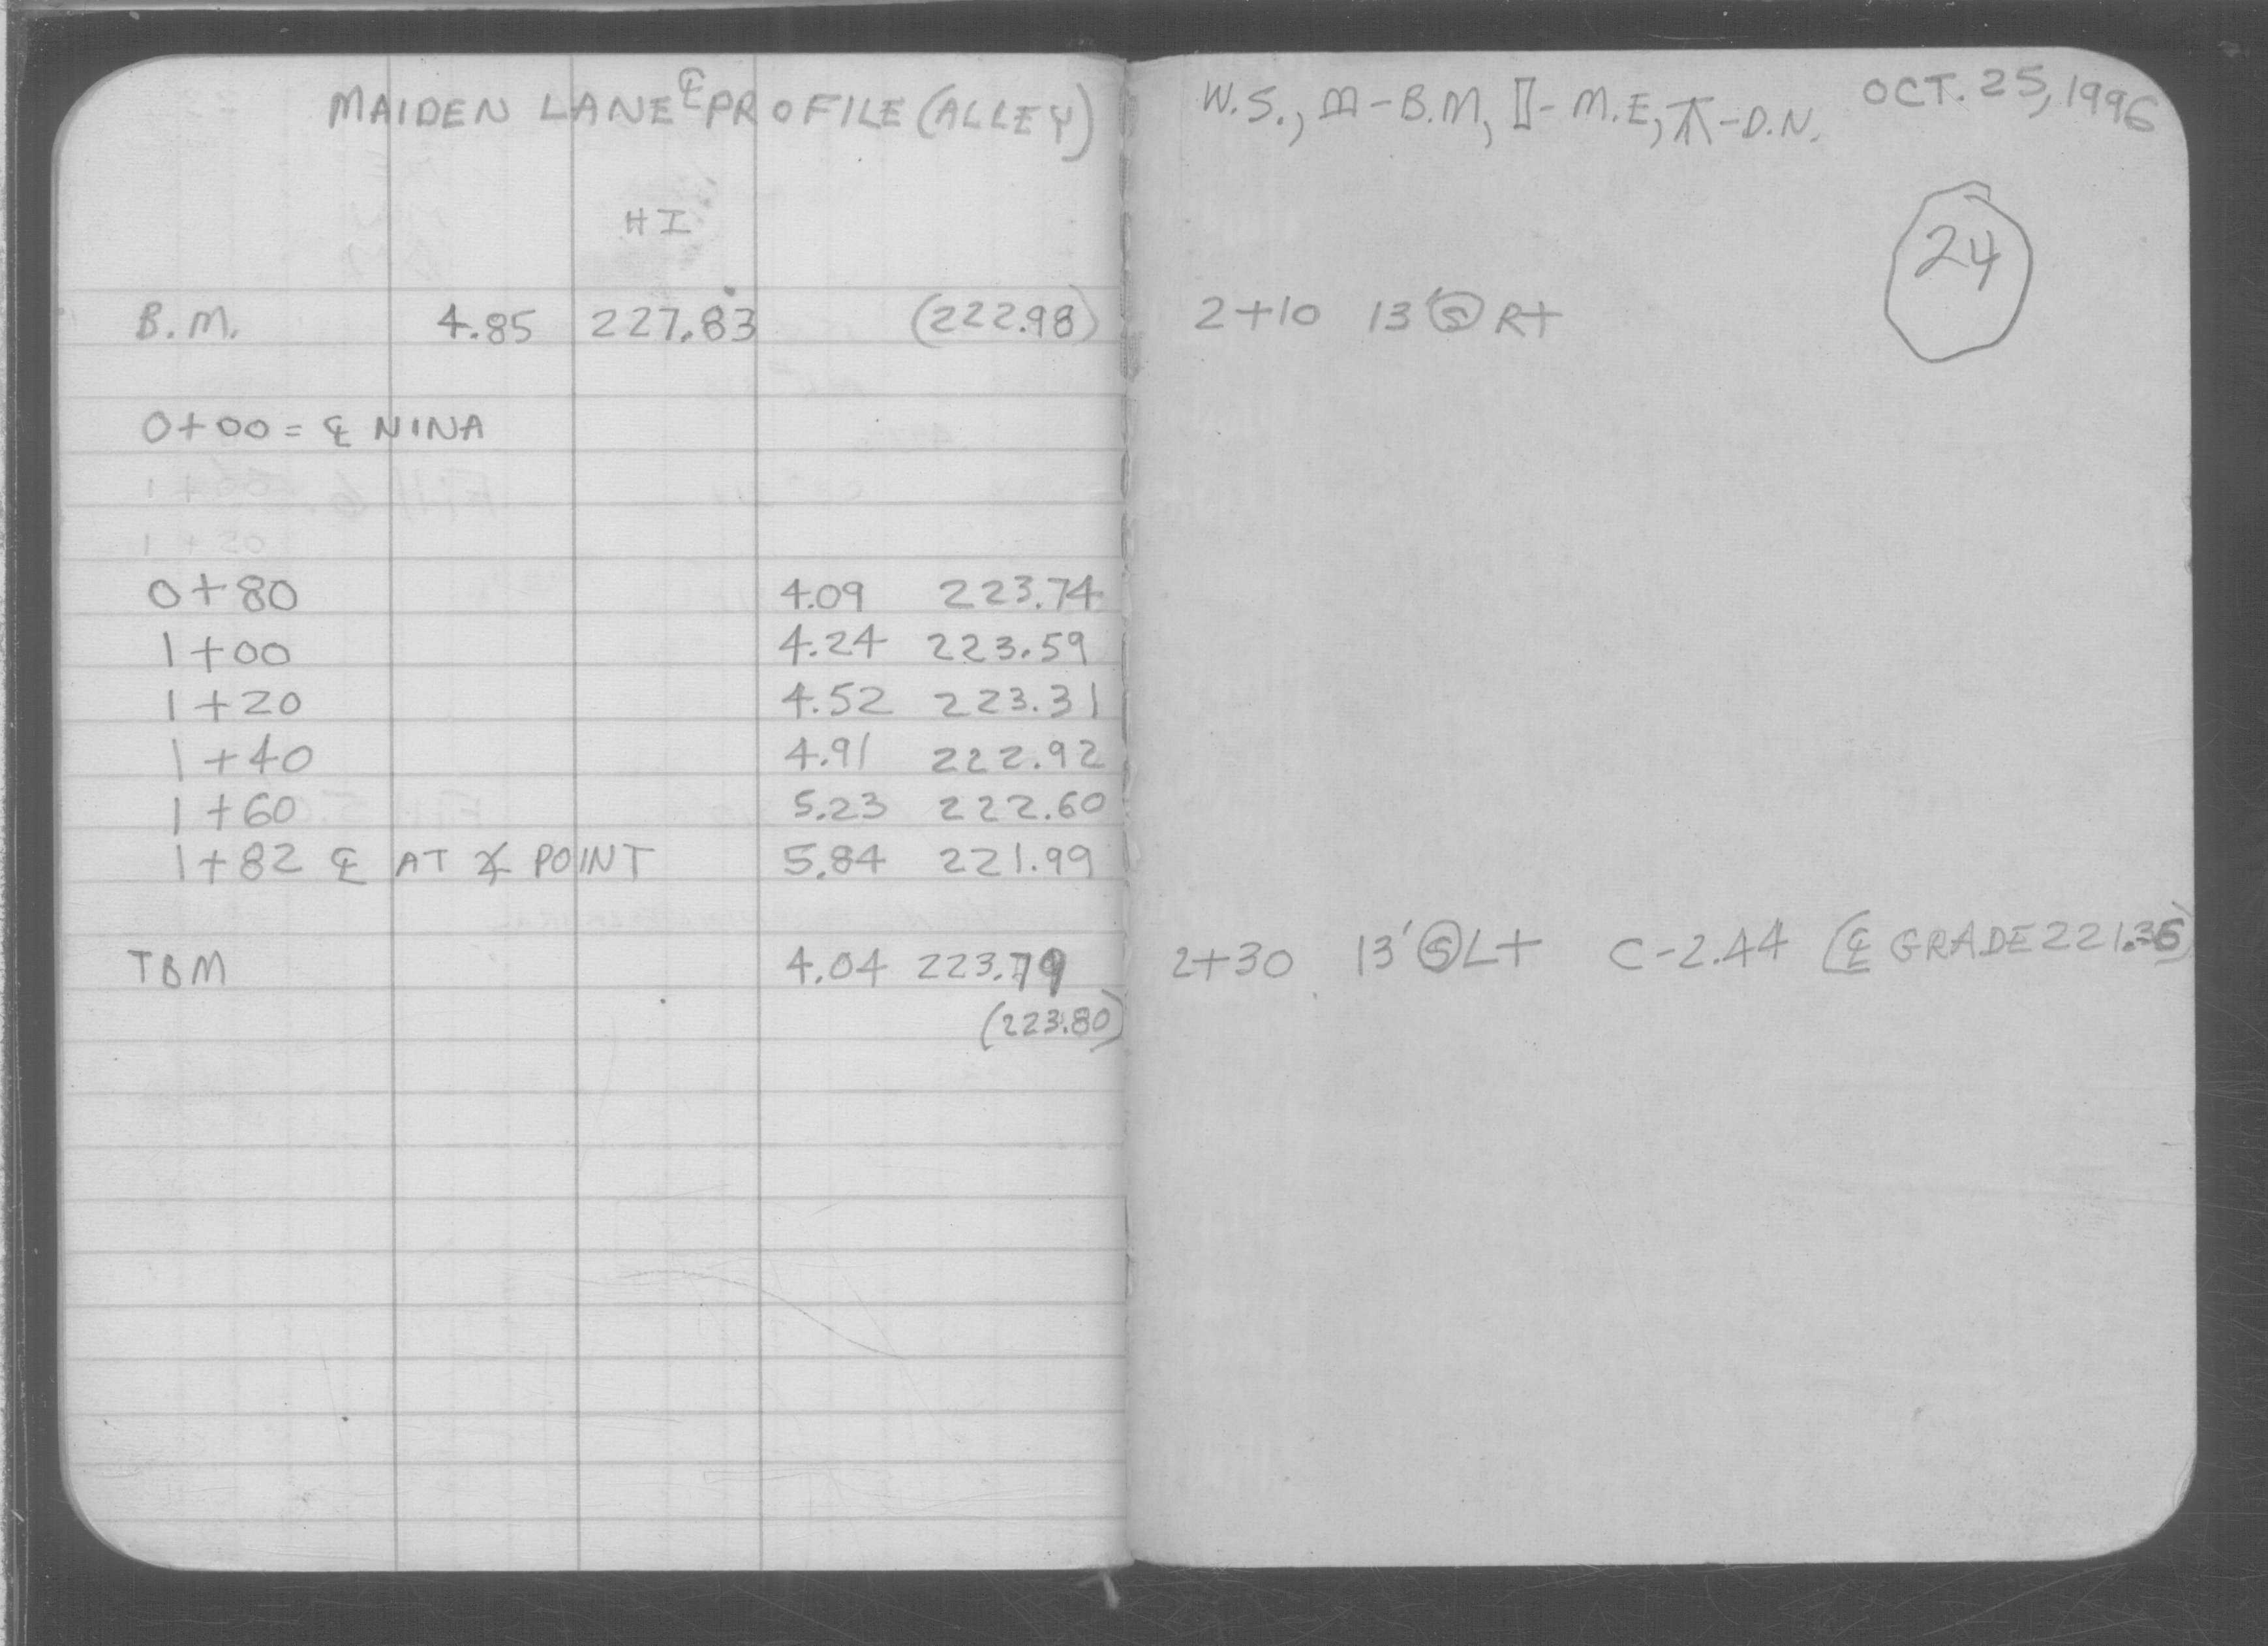 MAIDEN LANE ℄ PROFILE (ALLEY)
HI
B.M. 4.85 227.83 (222.98)
0+00 = ℄ NINA
0+80 4.09 223.74
1+00 4.24 223.59
1+20 4.52 223.31
1+40 4.91 222.92
1+60 5.23 222.60
1+82 ℄ AT ∡ POINT 5.84 221.99
TBM 4.04 223.79
(223.80)
W.S., - B.M, - M.E, - D.N. OCT. 25, 1996
24
2+10 13' Ⓢ Rt
2+30 13' Ⓢ Lt C-2.44 (℄ GRADE 221.36)